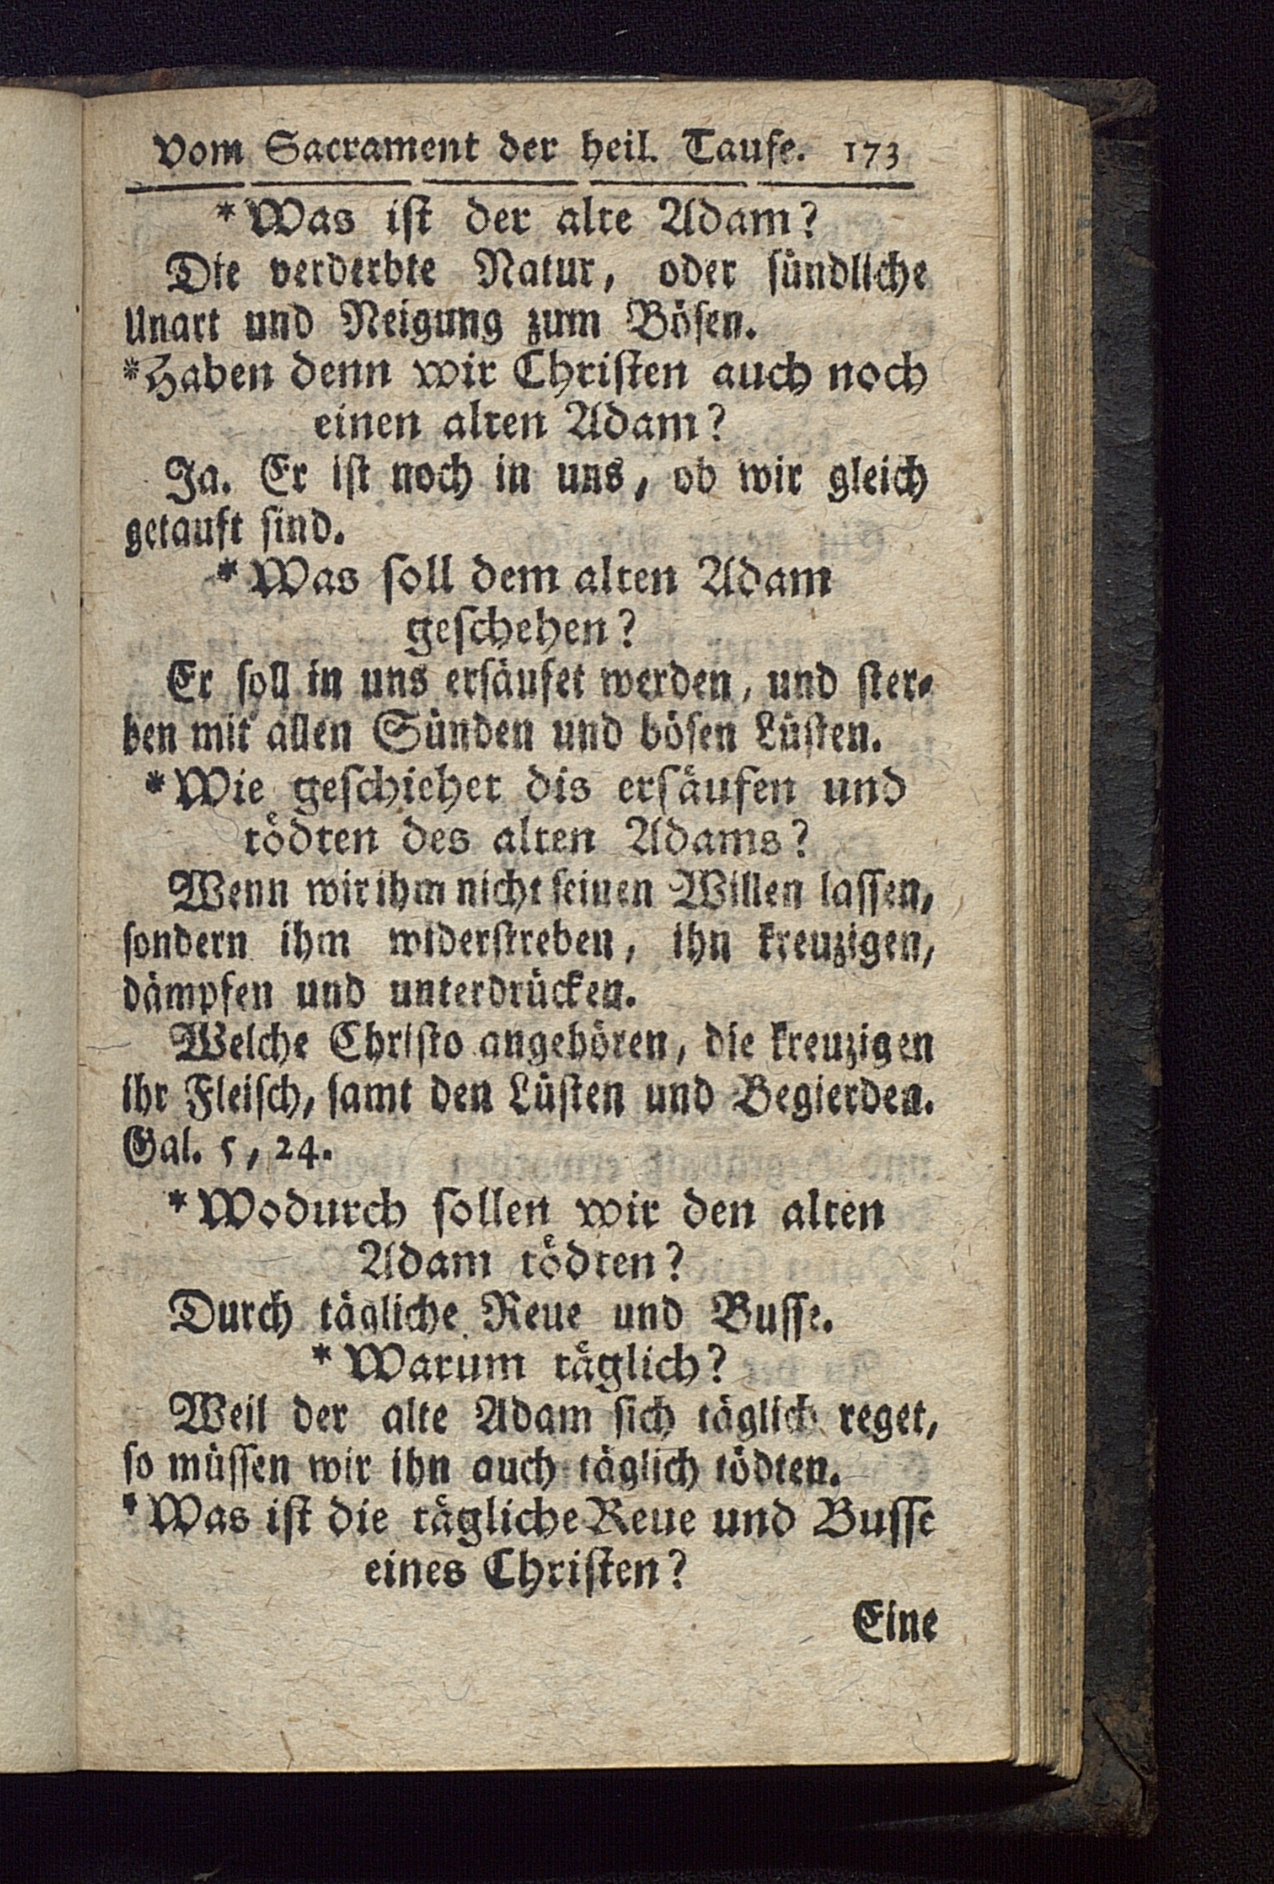 Vom Sacrament der heil. Taufe. 173
*Was ist der alte Adam?
Die verderbte Natur, oder sündliche
Unart und Neigung zum Bösen.
*Haben denn wir Christen auch noch
einen alten Adam?
Ja. Er ist noch in uns, ob wir gleich
getauft sind.
*Was soll dem alten Adam
geschehen?
Er soll in uns ersäufet werden, und ster-
ben mit allen Sünden und bösen Lüsten.
*Wie geschiehet dis ersäufen und
tödten des alten Adams?
Wenn wir ihm nicht seinen Willen lassen,
sondern ihm widerstreben, ihn kreuzigen,
dämpfen und unterdrücken.
Welche Christo angehören, die kreuzigen
ihr Fleisch, samt den Lüsten und Begierden.
Gal. 5, 24.
*Wodurch sollen wir den alten
Adam tödten?
Durch tägliche Reue und Busse.
*Warum täglich?
Weil der alte Adam sich täglich reget,
so müssen wir ihn auch täglich tödten.
*Was ist die tägliche Reue und Busse
eines Christen?
Eine